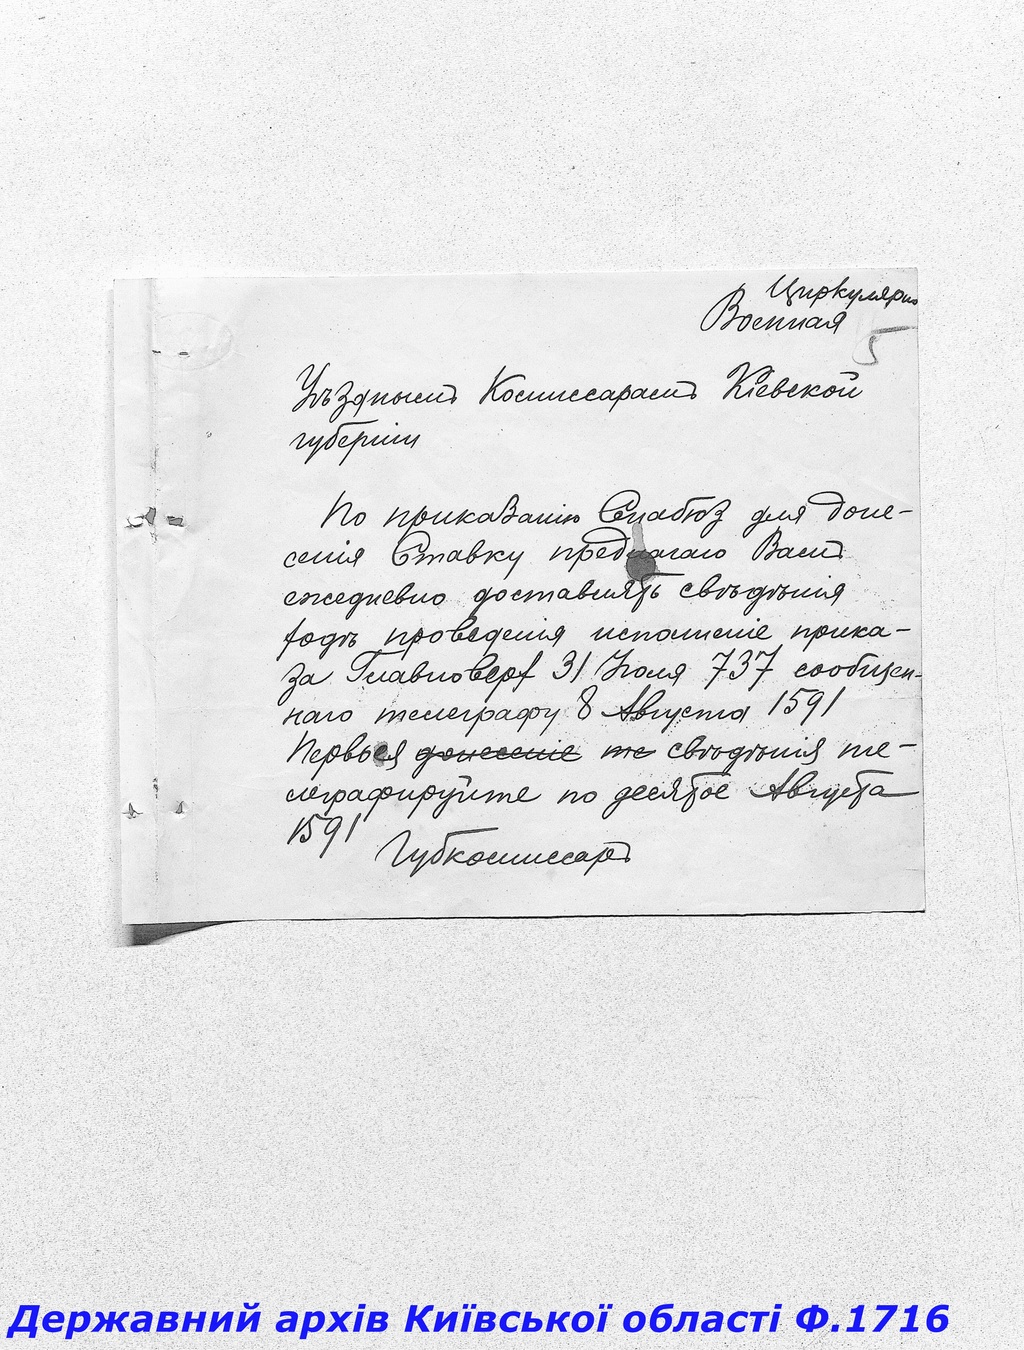 Циркулярно
Военная
5
Уѣзднымъ Комиссарамъ Кіевской
губерніи
По приказанію Снабюз для доне-
сенія Ставку предлагаю Вамъ
ежедневно доставлять свѣдѣнія
ходѣ проведенія исполненіе прика-
за Главноверх 31 Іюля 737 сообщен-
наго телеграфу 8 Августа 1591
Первыя донесеніе те свѣдѣнія те-
леграфируйте по десятое Августа
1591
Губкомиссаръ
Державний архів Київської області Ф.1716